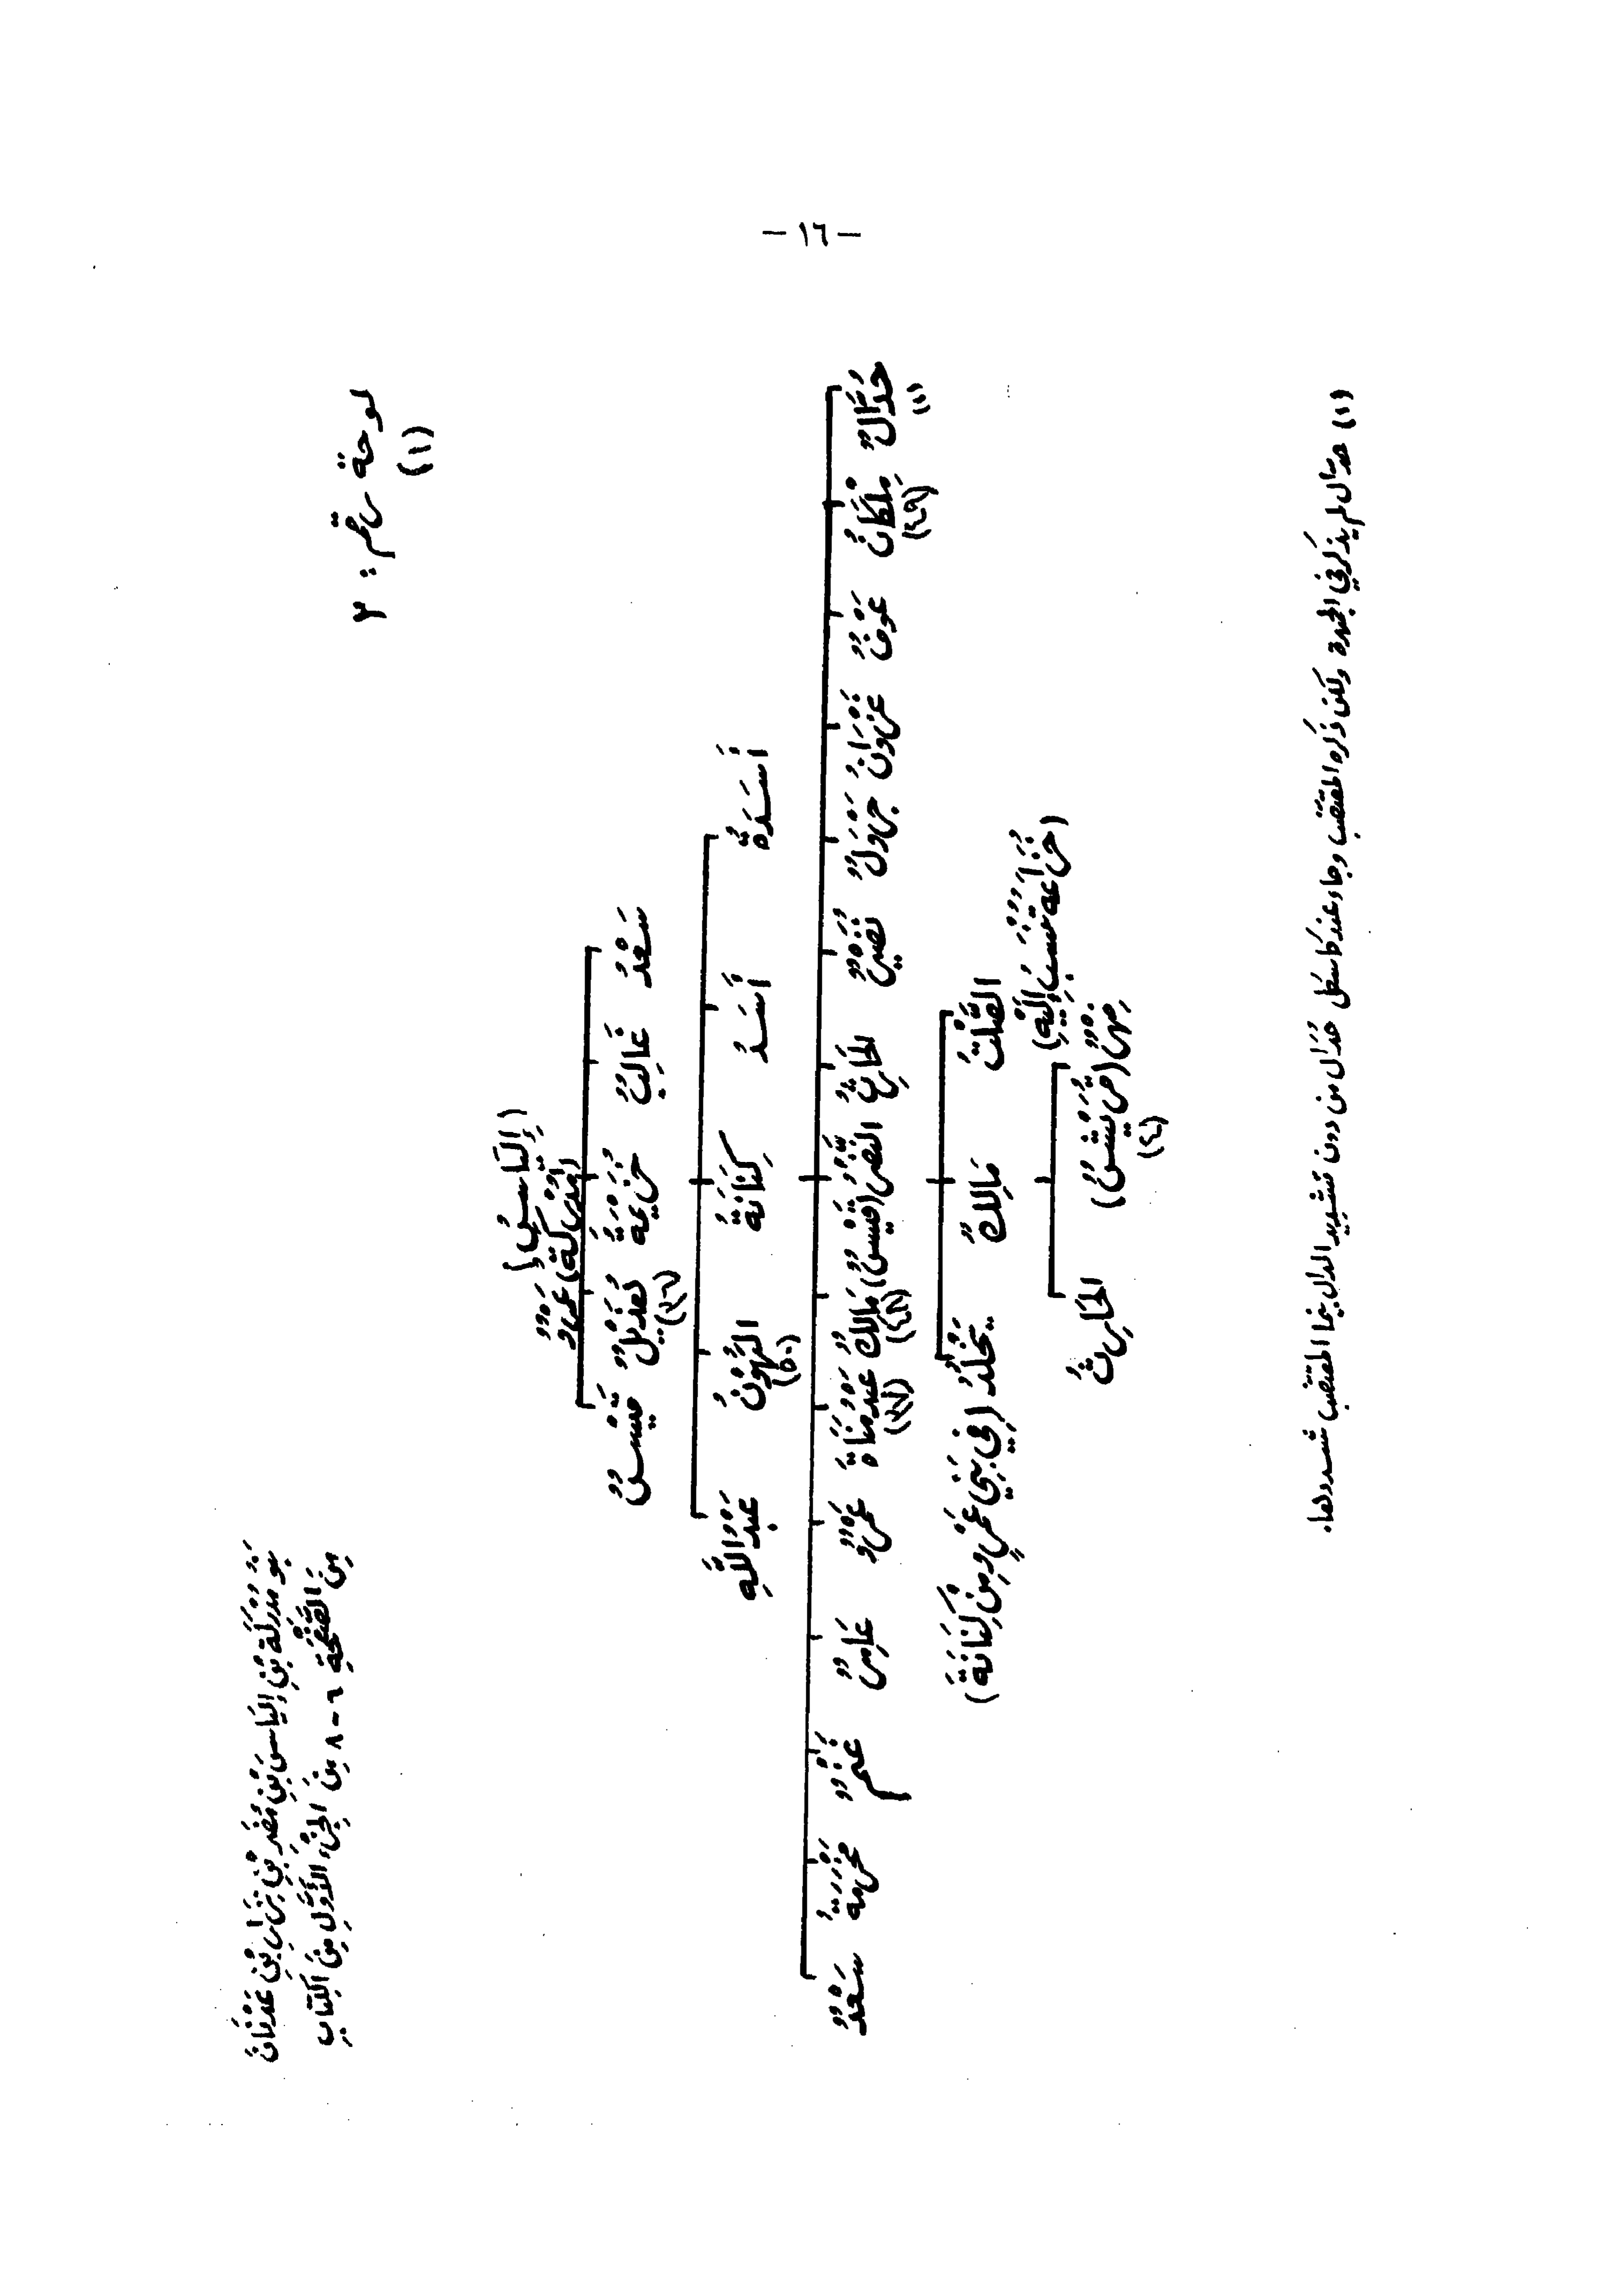 - ١٦ -
لوحة رقم: ٢
(١)
بَنُو مُدْرِكَةَ بْنِ إِلْيَاسَ بْنِ مُضَرَ بْنِ نِزَارِ بْنِ عَدْنَانَ
مِنَ الصَّفْحَةِ ٦ - ٨ مِنَ الجُزْءِ الأَوَّلِ مِنَ الكِتَابِ
(إِلْيَاسُ)
(مُدْرِكَةُ) عَمْرٌو
سَعْدٌ غَالِبٌ خُزَيْمَةُ هُذَيْلٌ قَيْسٌ
(٣٦)
أَسَدَةُ أَسَدٌ كِنَانَةُ الهُوْنُ عَبْدُ اللَّهِ
(٥٠)
حُدَّالٌ مِلْكَانُ عَوْفٌ غَزْوَانُ جَرْوَلٌ نُضَيْرٌ الحَارِثُ النَّضْرُ (قَيْسٌ) مَالِكٌ عَبْدُ مَنَاةَ عَمْرٌو عَامِرٌ غَنْمٌ مَخْرَمَةُ سَعْدٌ
(١) (٤٩) (٤٨) (٣٧)
الصَّلْتُ مَالِكٌ يَخْلُدُ (فِي بَنِي عَمْرٍو مِنْ كِنَانَةَ)
(خُزَاعَةُ تُنْسَبُ إِلَيْهِ)
فِهْرٌ (قُرَيْشٌ) الحَارِثُ
(٤)
(١) حدّال لم يذكر في الجمهرة ولكن ذكره المقتضب وجاء عند كاسكل حُدَال من دون تشديد الدال بينما المقتضب شددها.